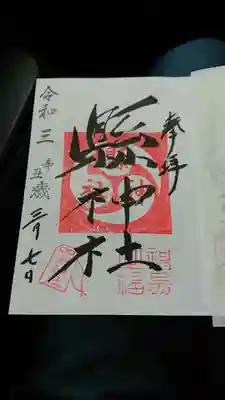 奉拝
縣神社
令和三辛丑歳三月七日